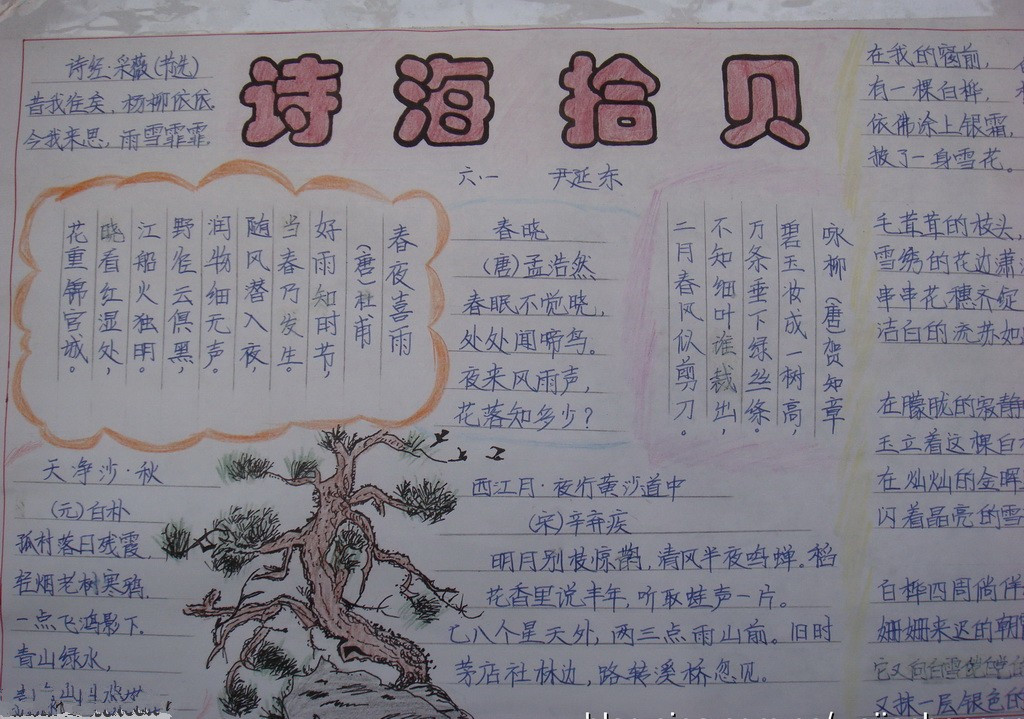 诗海拾贝
六.一 尹延东
诗经.采薇(节选)
昔我往矣,杨柳依依.
今我来思,雨雪霏霏.
春夜喜雨
(唐)杜甫
好雨知时节,
当春乃发生。
随风潜入夜,
润物细无声。
野径云俱黑,
江船火独明。
晓看红湿处,
花重锦官城。
春晓
(唐)孟浩然
春眠不觉晓,
处处闻啼鸟。
夜来风雨声,
花落知多少?
咏柳(唐)贺知章
碧玉妆成一树高,
万条垂下绿丝条。
不知细叶谁裁出,
二月春风似剪刀。
天净沙·秋
(元)白朴
孤村落日残霞,
轻烟老树寒鸦.
一点飞鸿影下.
青山绿水,
西江月·夜行黄沙道中
(宋)辛弃疾
明月别枝惊鹊,清风半夜鸣蝉。稻
花香里说丰年,听取蛙声一片。
七八个星天外,两三点雨山前。旧时
茅店社林边,路转溪桥忽见。
在我的窗前,
有一棵白桦,
依佛涂上银霜,
披了一身雪花。
毛茸茸的枝头,
雪绣的花边潇
串串花穗齐绽
洁白的流苏如
在朦胧的寂静
玉立着这棵白
在灿灿的金晖
闪着晶亮的雪
白桦四周徜徉
姗姗来迟的朝
它又向白雪皑皑的
又抹一层银色的